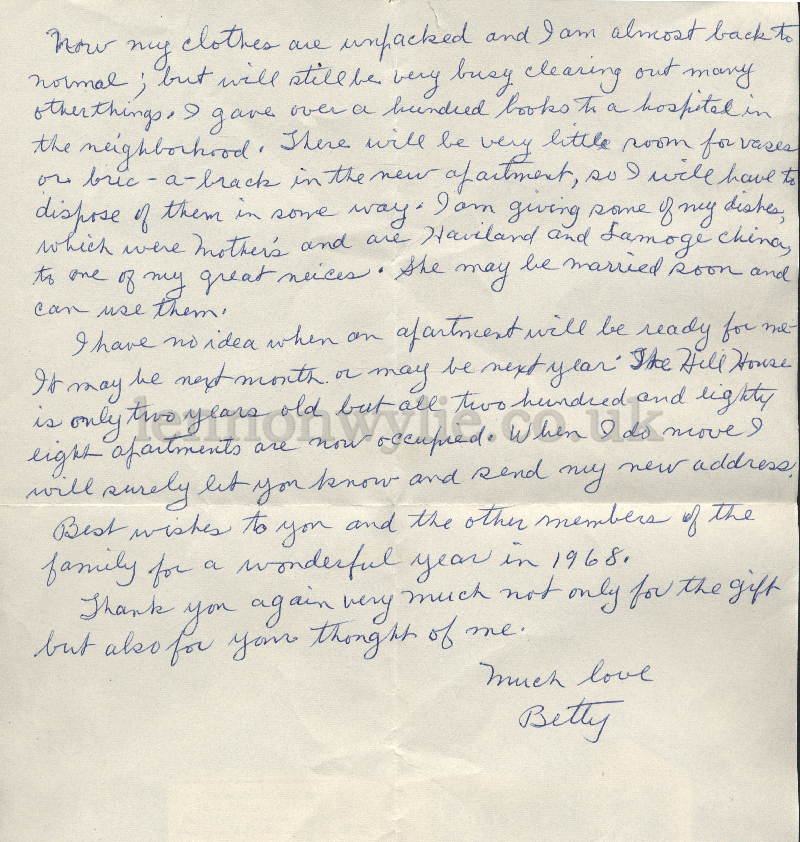 Now my clothes are unpacked and I am almost back to
normal; but will still be very busy clearing out many
other things. I gave over a hundred books to a hospital in
the neighborhood. There will be very little room for vases
or bric-a-brack in the new apartment, so I will have to
dispose of them in some way. I am giving some of my dishes,
which were Mother's and are Haviland and Lamoge china,
to one of my great neices. She may be married soon and
can use them.
I have no idea when an apartment will be ready for me.
It may be next month or may be next year. The Hill House
is only two years old but all two hundred and eighty
lennonwylie.co.uk
eight apartments are now occupied. When I do move I
will surely let you know and send my new address.
Best wishes to you and the other members of the
family for a wonderful year in 1968.
Thank you again very much not only for the gift
but also for your thought of me.
Much love
Betty